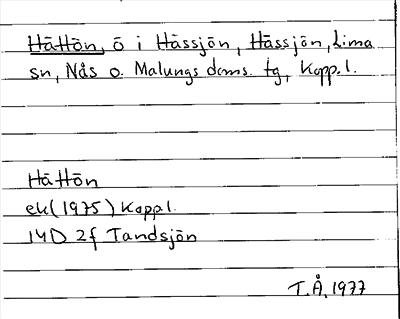 Håttön, ö i Hässjön, Hässjön, Lima
sn, Nås o. Malungs doms. tg, Kopp. l.
Håttön
ek (1975) Kopp l.
14D 2f Tandsjön
T.Å. 1977